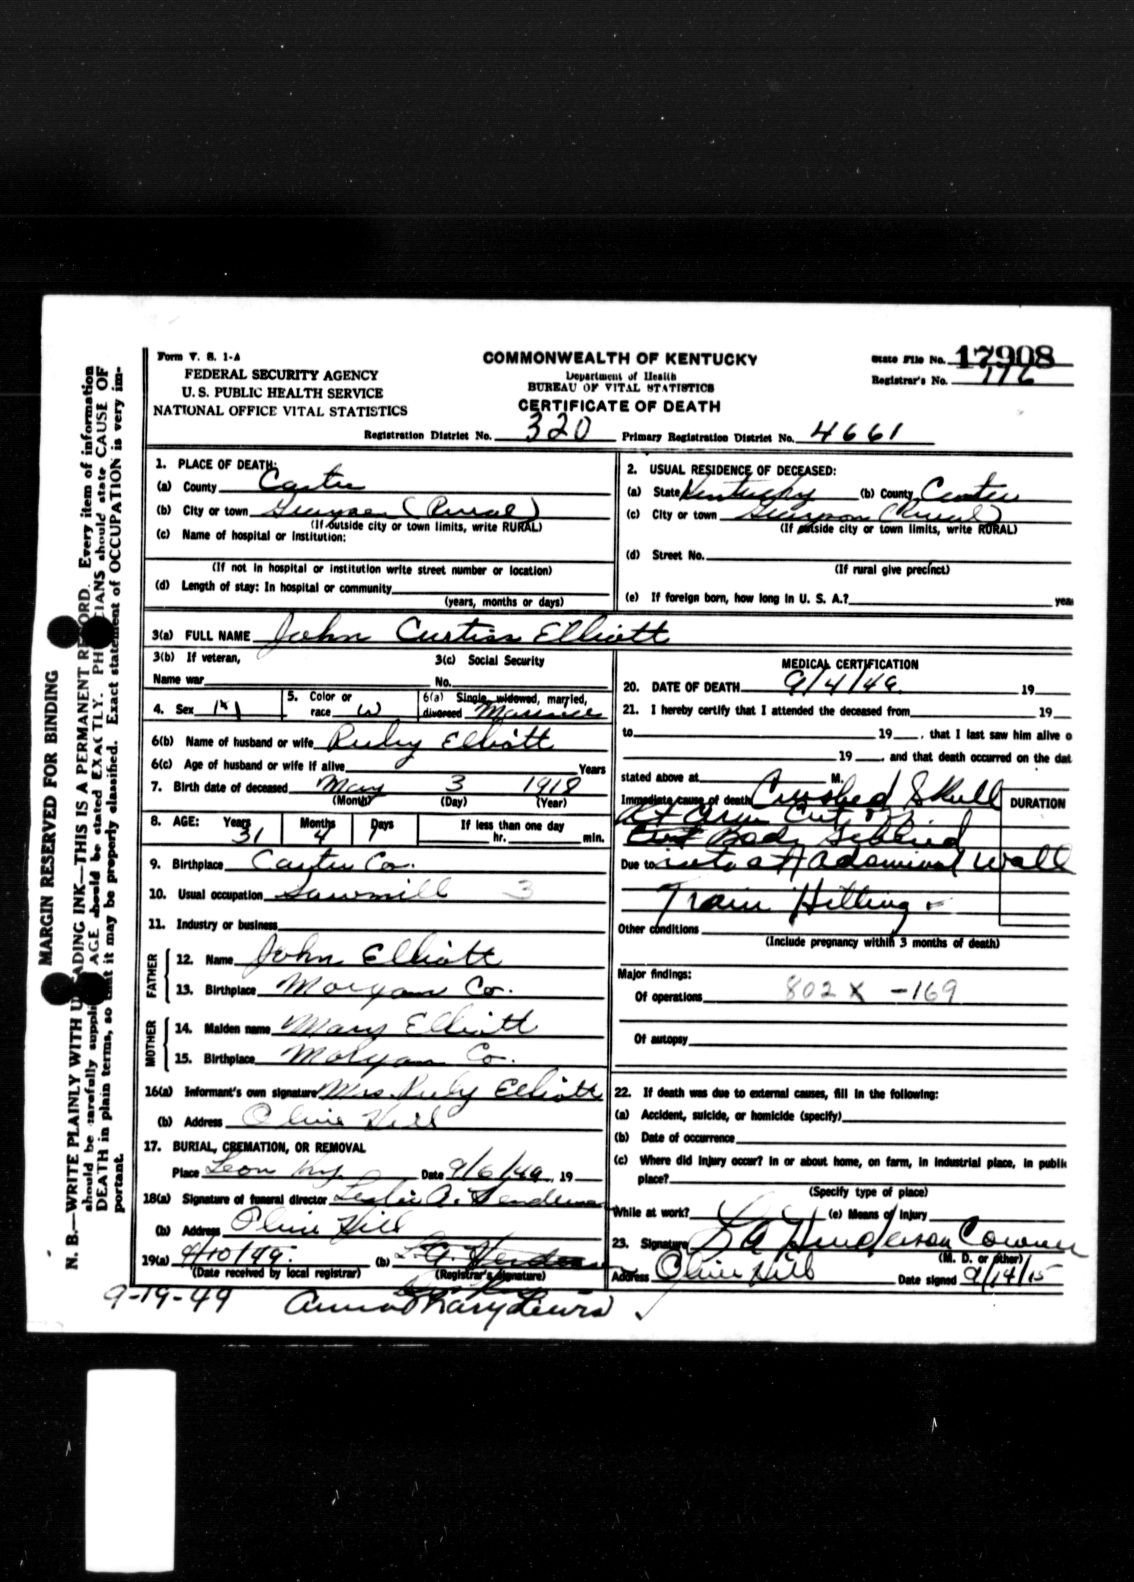 Form V. S. 1-A
FEDERAL SECURITY AGENCY
U. S. PUBLIC HEALTH SERVICE
NATIONAL OFFICE VITAL STATISTICS
COMMONWEALTH OF KENTUCKY
Department of Health
BUREAU OF VITAL STATISTICS
CERTIFICATE OF DEATH
State File No. 17908
Registrar's No. 776
Registration District No. 320 Primary Registration District No. 4661
MARGIN RESERVED FOR BINDING
N. B.—WRITE PLAINLY WITH UNFADING INK—THIS IS A PERMANENT RECORD. Every item of information
should be carefully supplied. AGE should be stated EXACTLY. PHYSICIANS should state CAUSE OF
DEATH in plain terms, so that it may be properly classified. Exact statement of OCCUPATION is very im-
portant.
1. PLACE OF DEATH:
(a) County Carter
(b) City or town (Rural)
(If outside city or town limits, write RURAL)
(c) Name of hospital or institution:
(If not in hospital or institution write street number or location)
(d) Length of stay: In hospital or community
(years, months or days)
2. USUAL RESIDENCE OF DECEASED:
(a) State Kentucky (b) County Carter
(c) City or town (Rural)
(If outside city or town limits, write RURAL)
(d) Street No.
(If rural give precinct)
(e) If foreign born, how long in U. S. A.? year
3(a) FULL NAME John Curtiss Elliott
3(b) If veteran,
Name war
3(c) Social Security
No.
4. Sex M
5. Color or
race W
6(a) Single, widowed, married,
divorced Married
6(b) Name of husband or wife Ruby Elliott
6(c) Age of husband or wife if alive Years
7. Birth date of deceased May 3 1918
(Month) (Day) (Year)
8. AGE: Years Months Days If less than one day
31 4 1 hr. min.
9. Birthplace Carter Co.
10. Usual occupation Sawmill 3
11. Industry or business
FATHER
12. Name John Elliott
13. Birthplace Morgan Co.
MOTHER
14. Maiden name Mary Elliott
15. Birthplace Morgan Co.
16(a) Informant's own signature Mrs. Ruby Elliott
(b) Address Olive Hill
17. BURIAL, CREMATION, OR REMOVAL
Place Leon Ky. Date 9/6/49, 19
18(a) Signature of funeral director Leslie A. Henderson
(b) Address Olive Hill
19(a) 9/10/49 (b)
(Date received by local registrar) (Registrar's signature)
9-19-49 Lewis
MEDICAL CERTIFICATION
20. DATE OF DEATH 9/4/49 19
21. I hereby certify that I attended the deceased from 19
to 19 , that I last saw him alive o
19 , and that death occurred on the dat
stated above at M.
Immediate cause of death Crushed Skull
Rt Arm Cut
DURATION
Body
Due to Wall
Train Hitting
Other conditions
(Include pregnancy within 3 months of death)
Major findings:
Of operations 802 X -169
Of autopsy
22. If death was due to external causes, fill in the following:
(a) Accident, suicide, or homicide (specify)
(b) Date of occurrence
(c) Where did injury occur? In or about home, on farm, in industrial place, in public
place?
(Specify type of place)
While at work? (e) Means of injury
23. Signature Henderson Coroner
(M. D. or other)
Address Olive Hill Date signed 9/14/15